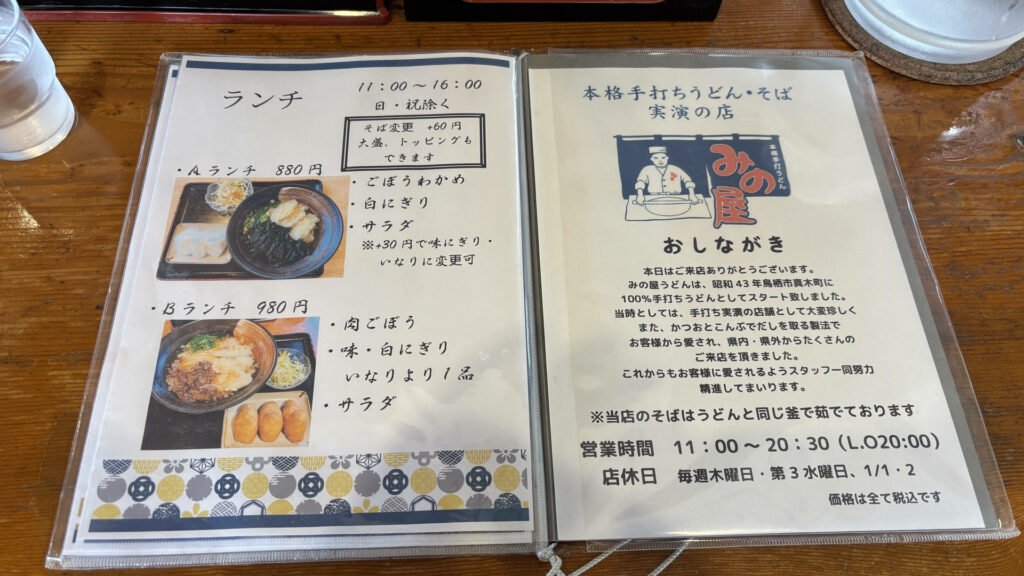 ランチ
11：00～16：00
日・祝除く
そば変更 +60円
大盛、トッピングも
できます
・Aランチ 880円
・ごぼうわかめ
・白にぎり
・サラダ
※+30円で味にぎり・
いなりに変更可
・Bランチ 980円
・肉ごぼう
・味・白にぎり
いなりより1品
・サラダ
本格手打ちうどん・そば
実演の店
本格手打うどん
みの屋
おしながき
本日はご来店ありがとうございます。
みの屋うどんは、昭和43年鳥栖市真木町に
100%手打ちうどんとしてスタート致しました。
当時としては、手打ち実演の店舗として大変珍しく
また、かつおとこんぶでだしを取る製法で
お客様から愛され、県内・県外からたくさんの
ご来店を頂きました。
これからもお客様に愛されるようスタッフ一同努力
精進してまいります。
※当店のそばはうどんと同じ釜で茹でております
営業時間 11：00～20：30（L.O20:00）
店休日 毎週木曜日・第3水曜日、1/1・2
価格は全て税込です